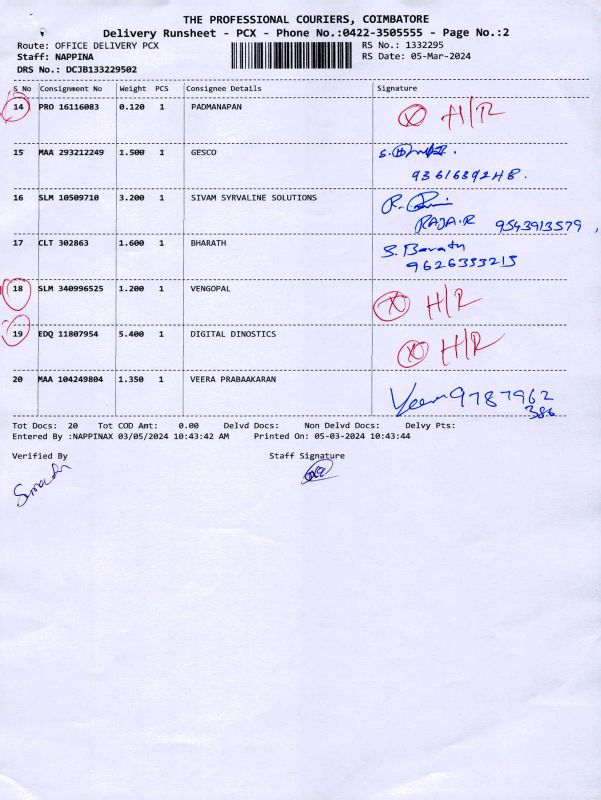 THE PROFESSIONAL COURIERS, COIMBATORE
Delivery Runsheet - PCX - Phone No.:0422-3505555 - Page No.:2
Route: OFFICE DELIVERY PCX RS No.: 1332295
Staff: NAPPINA RS Date: 05-Mar-2024
DRS No.: DCJB133229502
S_No Consignment No Weight PCS Consignee Details Signature
14 PRO 16116083 0.120 1 PADMANAPAN X H/R
15 MAA 293212249 1.500 1 GESCO
16 SLM 10509710 3.200 1 SIVAM SYRVALINE SOLUTIONS
RAJA.R 9543913579,
17 CLT 302863 1.600 1 BHARATH S. Barath
9626333213
18 SLM 340996525 1.200 1 VENGOPAL X H/R
19 EDQ 11807954 5.400 1 DIGITAL DINOSTICS X H/R
20 MAA 104249804 1.350 1 VEERA PRABAAKARAN Veera 9787962
386
Tot Docs: 20 Tot COD Amt: 0.00 Delvd Docs: Non Delvd Docs: Delvy Pts:
Entered By :NAPPINAX 03/05/2024 10:43:42 AM Printed On: 05-03-2024 10:43:44
Verified By Staff Signature